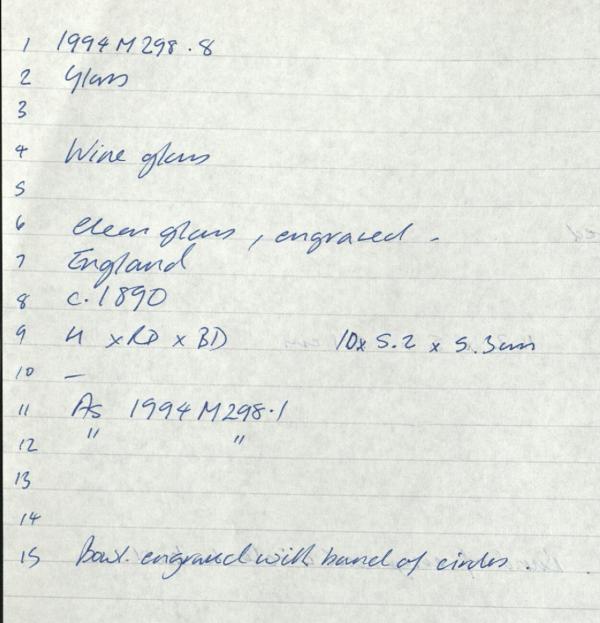 1 1994 M 298.8
2 Glass
3
4 Wine glass
5
6 Clear glass, engraved -
7 England
8 c.1890
9 H x RD x BD 10 x 5.2 x 5.3cm
10 -
11 As 1994 M298.1
12 " "
13
14
15 Bowl engraved with band of circles.